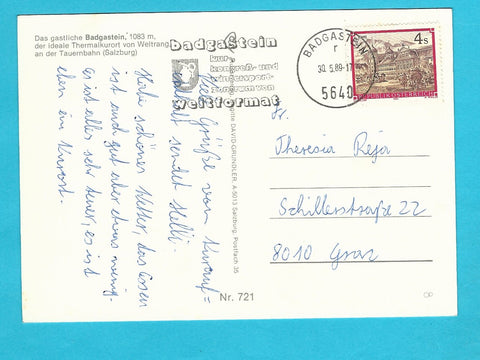 Das gastliche Badgastein, 1083 m,
der ideale Thermalkurort von Weltrang
an der Tauernbahn (Salzburg)
badgastein
kur
kongreß- und
wintersport-
zentrum von
weltformat
BADGASTEIN
r
30. 5.89-17
5640
4s
REPUBLIK ÖSTERREICH
DAVID GRUNDLER, A-5013 Salzburg, Postfach 35
Viele Grüße vom Kurauf=
enthalt sendet Helli.
Habe schönes Wetter, das Essen
ist auch gut aber etwas wenig.
es ist alles sehr teuer, es ist
eben ein Kurort.
Fr.
Theresia Reja
Schillerstraße 22
8010 Graz
Nr. 721